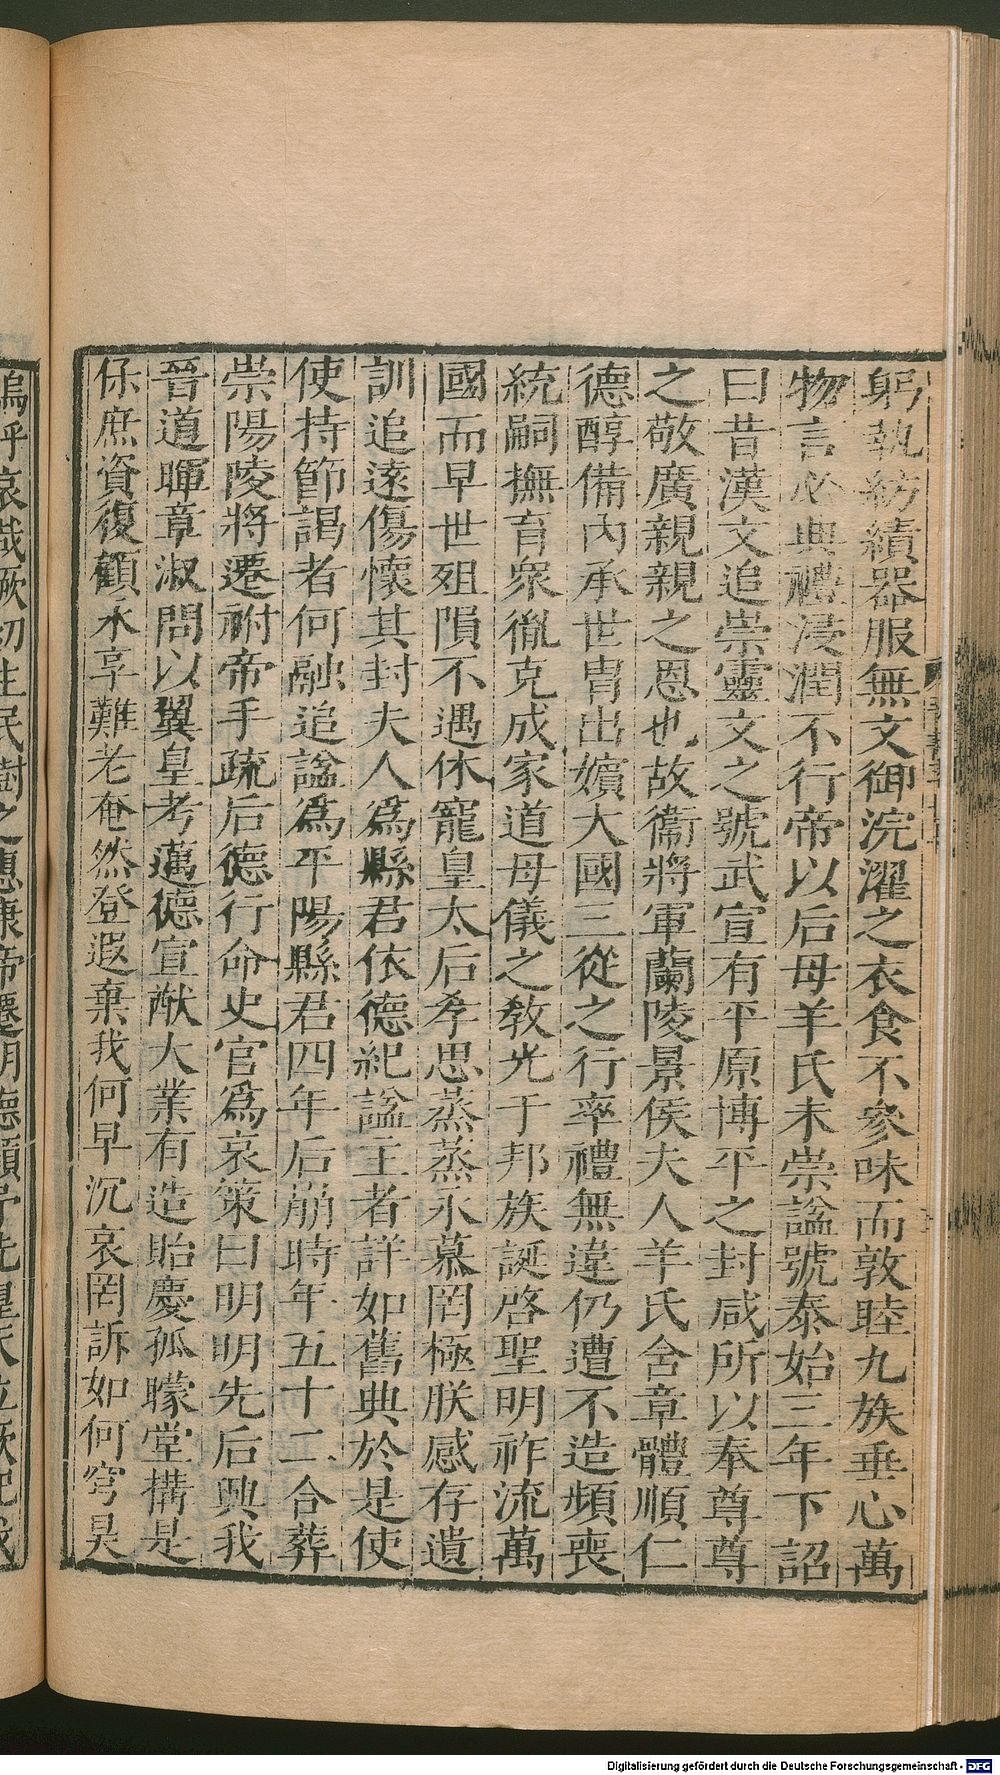 躬執紡績器服無文御浣濯之衣食不參味而敦睦九族垂心萬
物言必典禮浸潤不行帝以后母羊氏未崇諡號泰始三年下詔
曰昔漢文追崇靈文之號武宣有平原博平之封咸所以奉尊尊
之敬廣親親之恩也故衞將軍蘭陵景侯夫人羊氏含章體順仁
德醇備內承世胄出嬪大國三從之行率禮無違仍遭不造頻喪
統嗣撫育衆胤克成家道母儀之敎光于邦族誕啓聖明祚流萬
國而早世殂隕不遇休寵皇太后孝思蒸蒸永慕罔極朕感存遺
訓追遠傷懷其封夫人爲縣君依德紀諡主者詳如舊典於是使
使持節謁者何融追諡爲平陽縣君四年后崩時年五十二合葬
崇陽陵將遷祔帝手疏后德行命史官爲哀策曰明明先后興我
晉道暉章淑問以翼皇考邁德宣猷大業有造貽慶孤矇堂搆是
保庶資復顧永享難老奄然登遐棄我何早沉哀罔訴如何穹昊
嗚呼哀哉厥初生民樹之惠康帝遷明德顧予先皇天立厥妃我
Digitalisierung gefördert durch die Deutsche Forschungsgemeinschaft - DFG